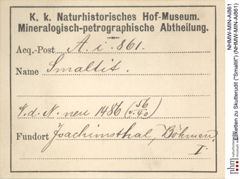 K. k. Naturhistorisches Hof-Museum.
Mineralogisch-petrographische Abtheilung.
Acq.-Post A. i. 861.
Name Smaltit.
V. d. N. neu 1486 (56
Fundort Joachimsthal, Böhmen.
I.
NHMW-MIN-A1861
(NHMW-MIN-A1861)